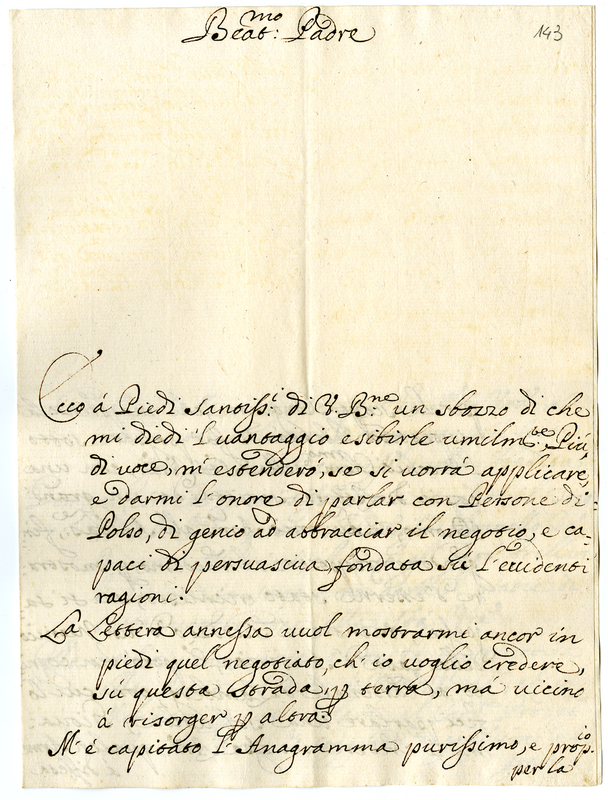 Beat:mo Padre
143
Ecco á Piedi santiss:i di V. B:ne un sbozzo di che
mi diedi l'vantaggio esibirle umilm:te. Piú
di voce, m'estenderó, se si vorrá applicare,
e darmi l'onore di parlar con Persone di
Polso, di genio ad abbracciar il negotio, e ca-
paci di persuasiva fondata sú l'evidenti
ragioni.
La Lettera annessa vuol mostrarmi ancor in
piedi quel negotiato, ch'io voglio credere,
sú questa strada, ꝑ terra, má vicino
á risorger ꝑ altra.
M'é capitato l'Anagramma purissimo, e prop:io
per la